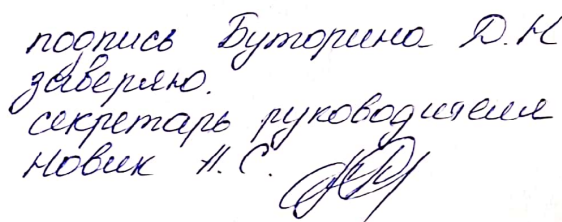 подпись Буторина Д.Н
заверяю.
секретарь руководителя
Новик Н.С.